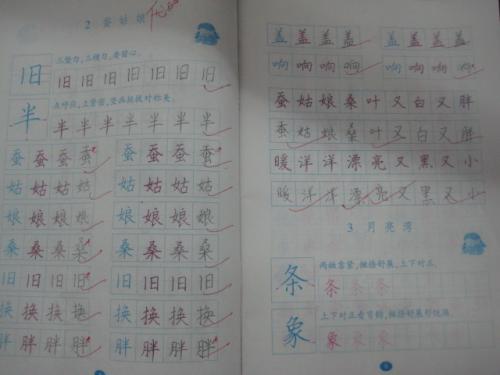 2 蚕姑娘
旧 三竖匀,三横匀,要留心。
旧 旧 旧 旧 旧 旧 旧
半
半 半 半 半 半 半 半
蚕 蚕 蚕 蚕 蚕 蚕 蚕 蚕
姑 姑 姑 姑 姑 姑 姑 姑
娘 娘 娘 娘 娘 娘 娘 娘
桑 桑 桑 桑 桑 桑 桑 桑
旧 旧 旧 旧 旧 旧 旧 旧
换 换 换 换 换 换 换 换
胖 胖 胖 胖 胖 胖 胖 胖
盖 盖 盖 盖 盖 盖 盖 盖
响 响 响 响 响 响 响 响
蚕 姑 娘 桑 叶 又 白 又 胖
蚕 姑 娘 桑 叶 又 白 又 胖
暖 洋 洋 漂 亮 又 黑 又 小
暖 洋 洋 漂 亮 又 黑 又 小
3 月亮湾
条 两撇靠紧,撇捺舒展,上下对正。
条 条 条 条
象
象 象 象 象